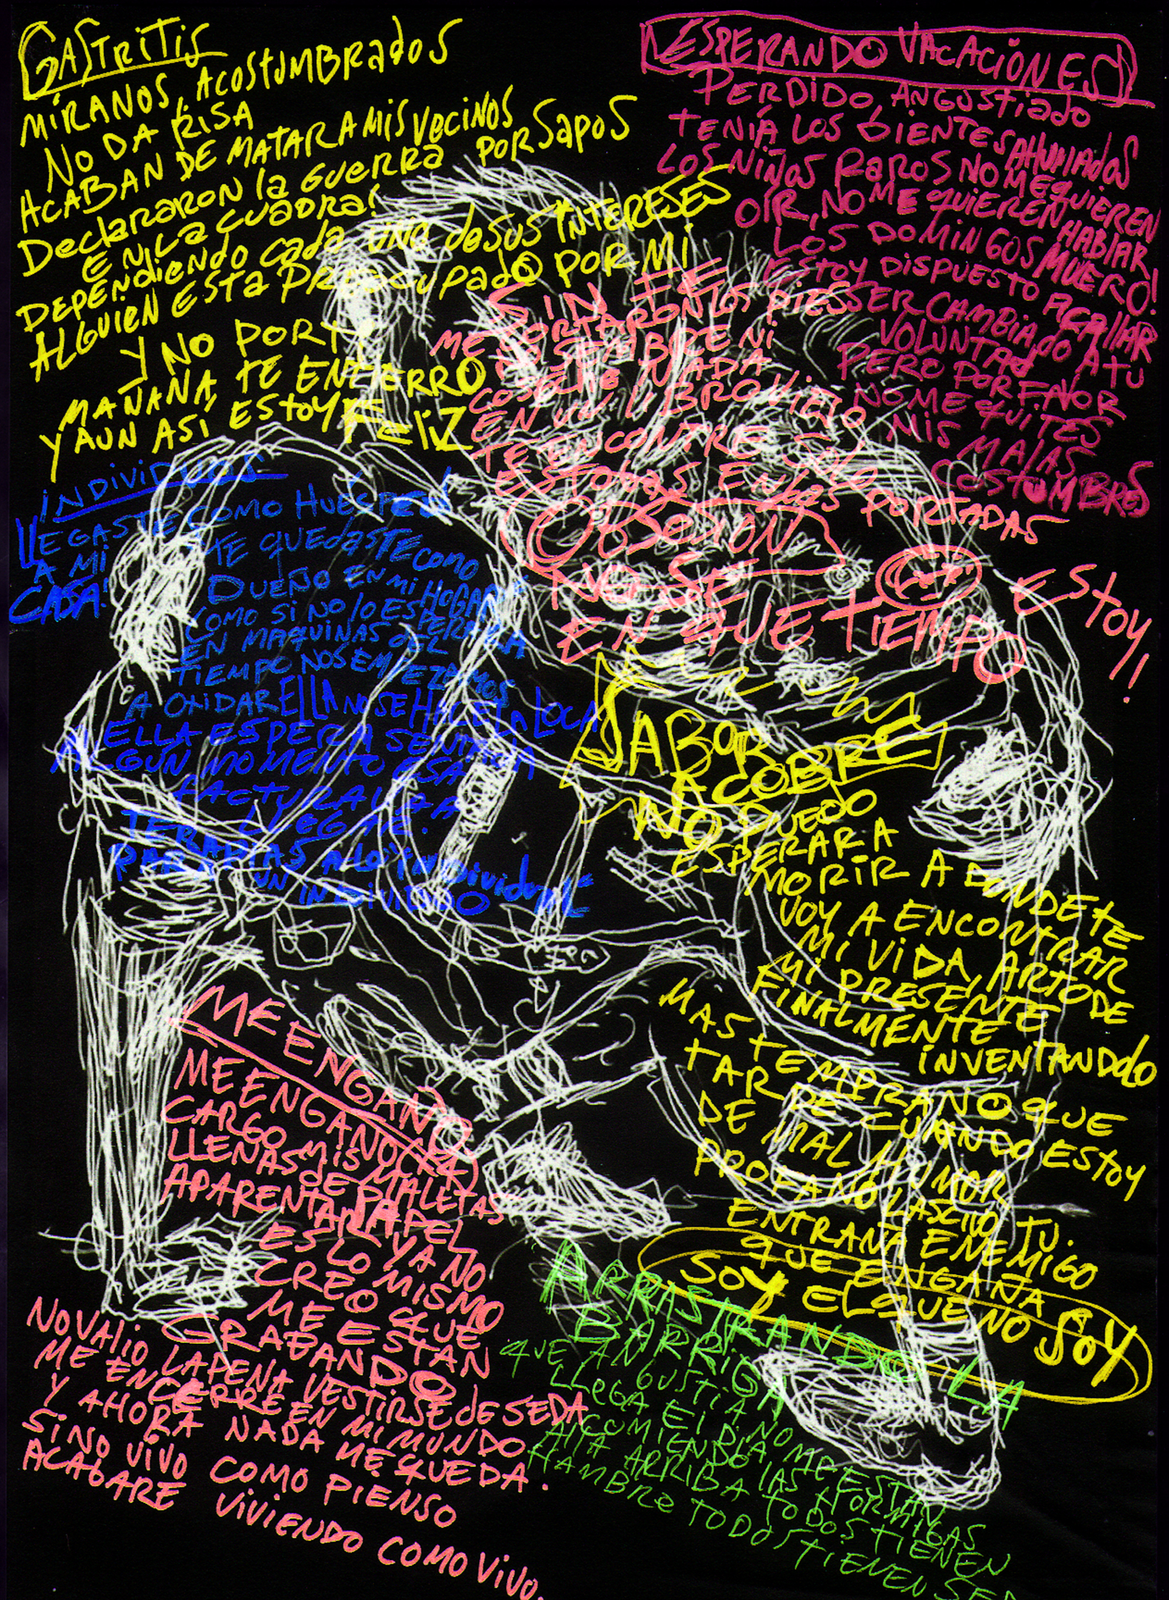 GASTRITIS
MÍRANOS, ACOSTUMBRADOS
NO DA RISA
ACABAN DE MATAR A MIS VECINOS
DECLARARON LA GUERRA POR SAPOS
EN LA CUADRA!
DEPENDIENDO CADA UNO DE SUS INTERESES
ALGUIEN ESTA PREOCUPADO POR MI
Y NO POR TI
MAÑANA TE ENCIERRO
Y AUN ASÍ ESTOY FELIZ
ESPERANDO VACACIÓNES
PERDIDO, ANGUSTIADO
TENÍA LOS DIENTES AHUMADOS
LOS NIÑOS RAROS NO ME QUIEREN
OIR, NO ME QUIEREN HABLAR
LOS DOMINGOS MUERO!
ESTOY DISPUESTO A CALLAR
SER CAMBIADO A TU
VOLUNTAD
PERO POR FAVOR
NO ME QUITES
MIS MALAS
COSTUMBRES
SIN FE
ME CORTARON LOS PIES
NI
NADA
EN UN LIBRO VIEJO
TE ENCONTRE
ESTABAS EN LAS PORTADAS
OBSESION
NO SE
EN QUE TIEMPO
ESTOY!
INDIVIDUOS
LLEGASTE COMO HUESPED
A MI
CASA!
TE QUEDASTE COMO
DUEÑO EN MI HOGAR
COMO SI NO LO ESPERARA
EN MAQUINAS DEL
TIEMPO NOS EMPEZAMOS
A OXIDAR ELLA NO SE HACE LA LOCA
ELLA ESPERA SENTADA
ALGUN MOMENTO ESA
FACTURA VA A
LLEGAR!
A LO INDIVIDUAL
UN INDIVIDUO
SABOR
A COBRE
NO PUEDO
ESPERAR A
MORIR A DONDE TE
VOY A ENCONTRAR
MI VIDA, ARTO DE
MI PRESENTE
FINALMENTE
INVENTANDOLO
MAS TEMPRANO QUE
TARDE CUANDO ESTOY
DE MAL HUMOR
PROFANO LASCIVO TU
ENTRAÑA ENEMIGO
QUE ENGAÑA
SOY EL QUE NO SOY
ME ENGANO
ME ENGANO
CARGO MIS MALETAS
LLENAS DE PAPEL
APARENTAR YA NO
ES LO MISMO
CREO QUE
ME ESTAN
GRABANDO
NO VALIO LA PENA VESTIRSE DE SEDA
ME ENCERRE EN MI MUNDO
Y AHORA NADA ME QUEDA.
SI NO VIVO COMO PIENSO
ACABARE VIVIENDO COMO VIVO.
ARRASTRANDO LA
BARRIGA
QUE ANGUSTIA
LLEGA EL DIA NO ME ESTAN
COMIENDO LAS HORMIGAS
AHA ARRIBA TODOS TIENEN
HAMBRE TODOS TIENEN SED